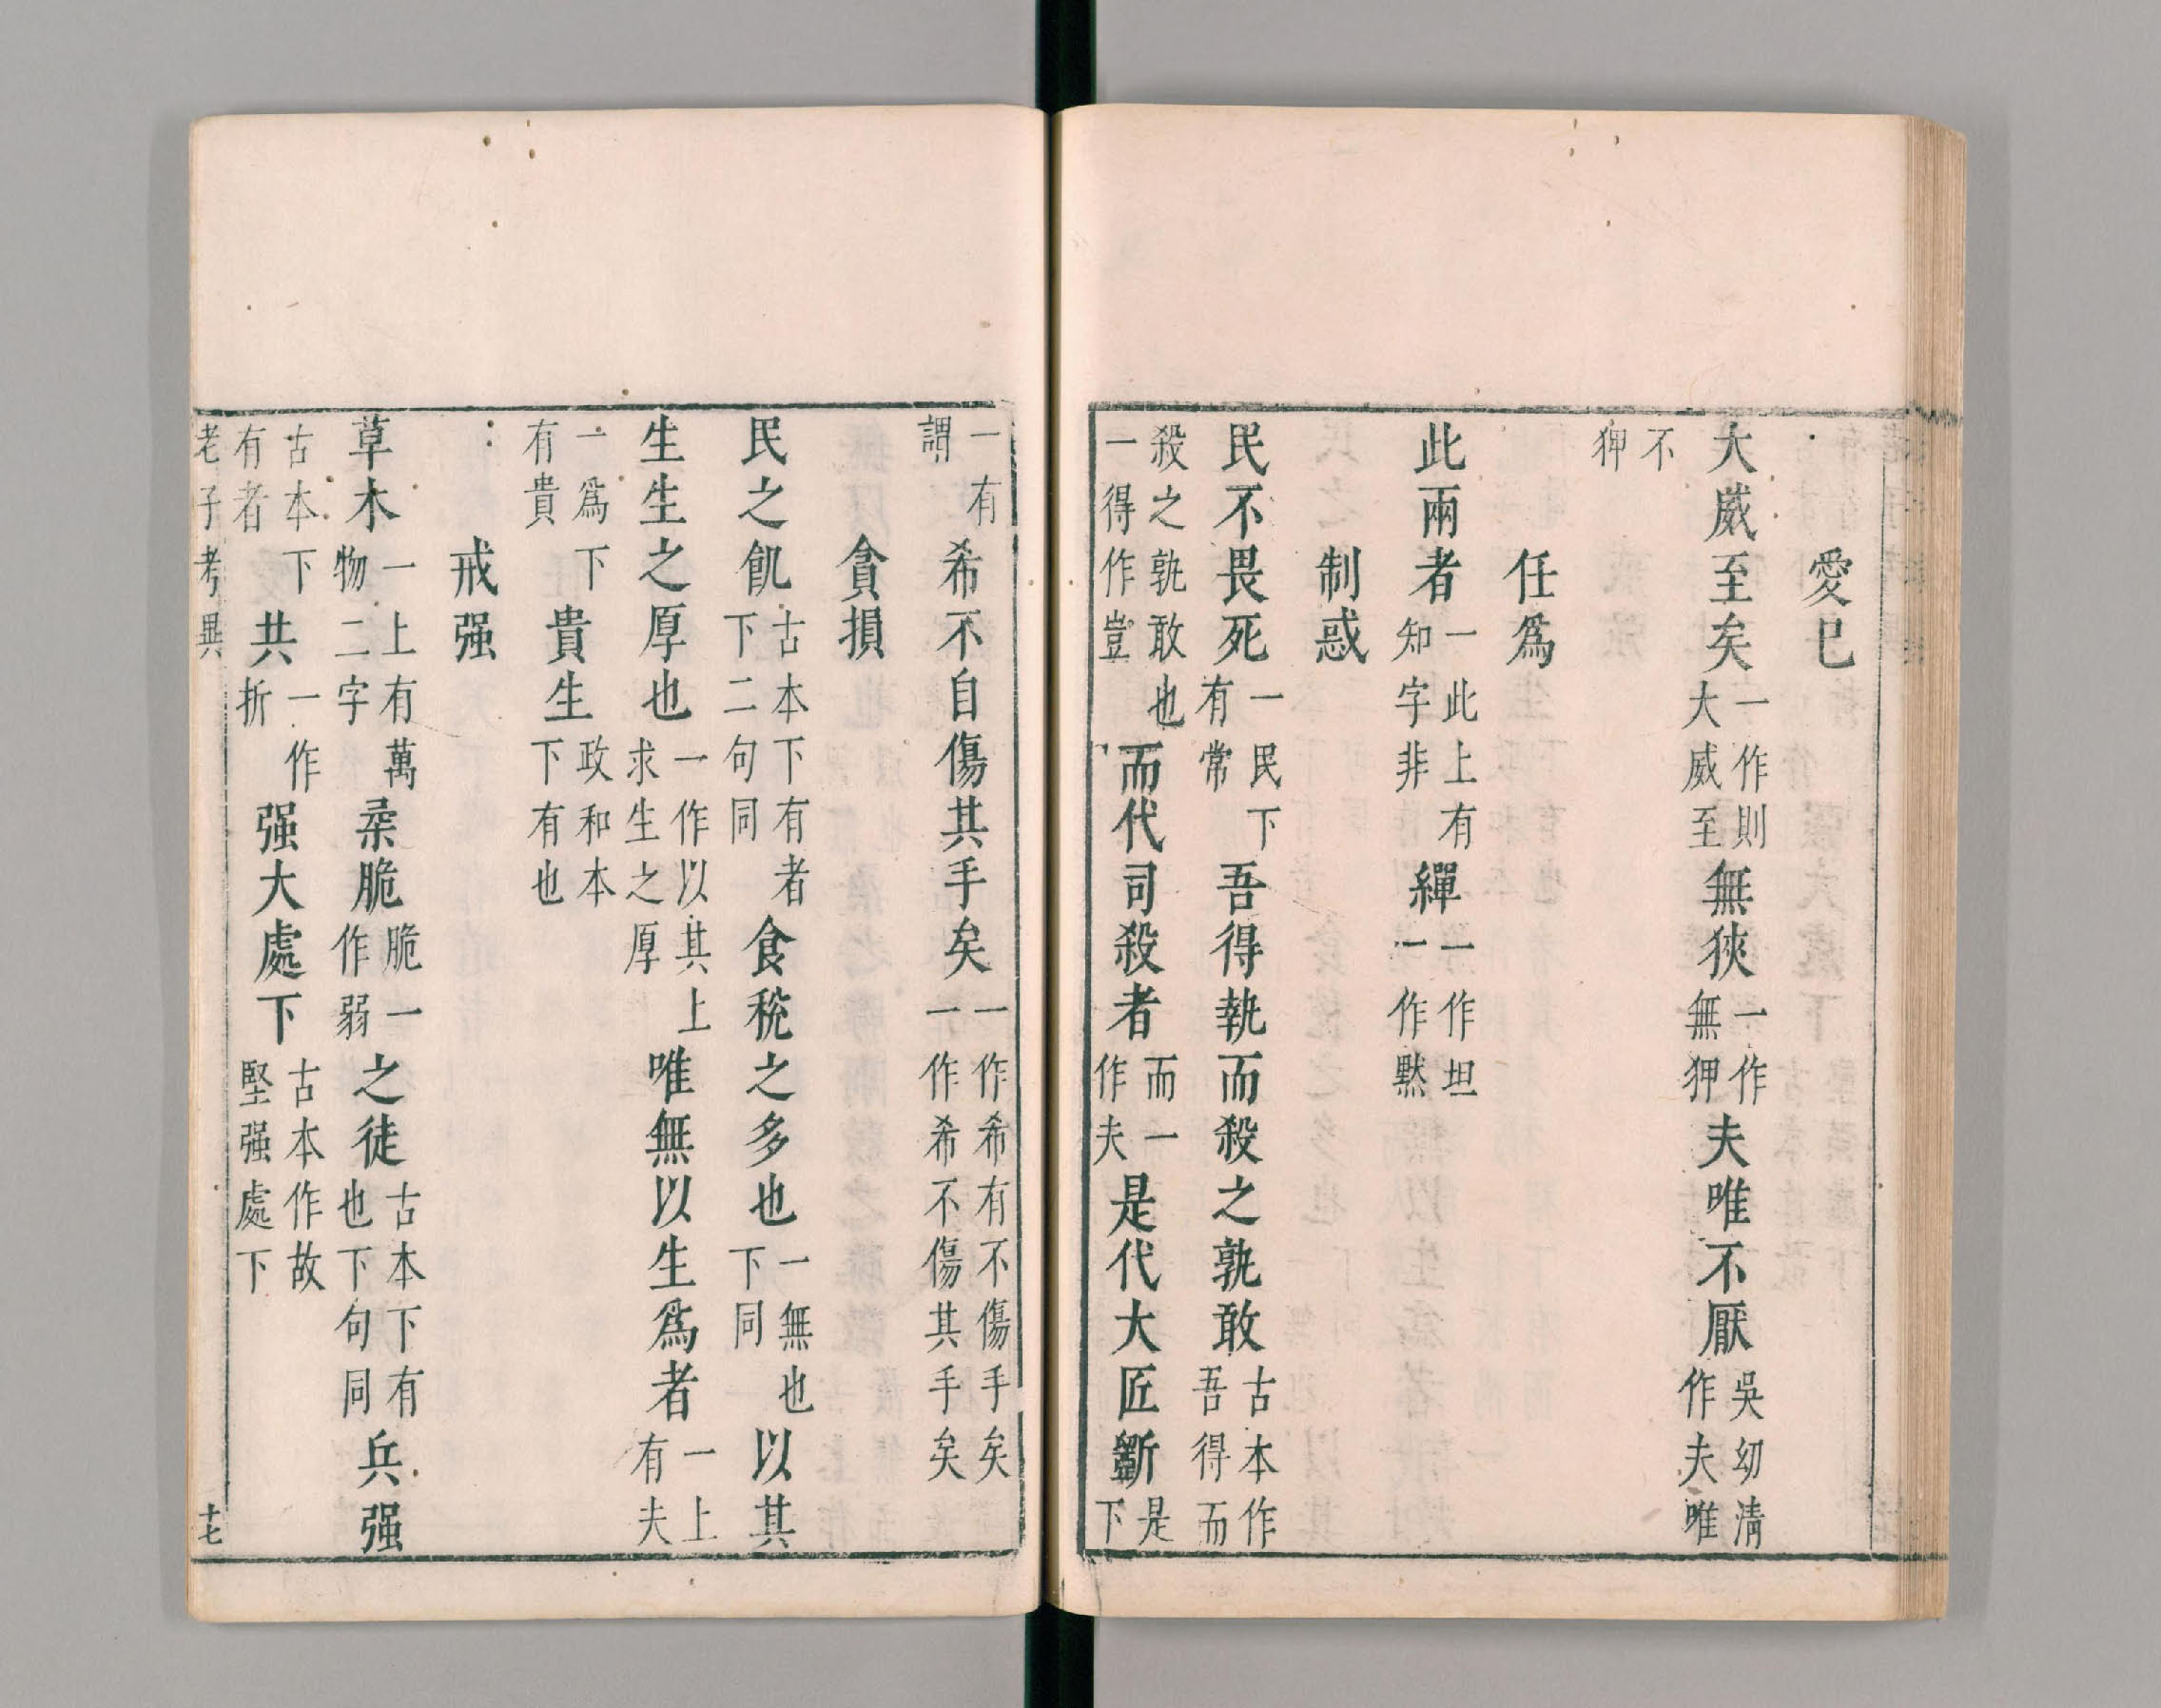 愛已
大威至矣一作則大威至無狹一作無狎夫唯不厭吳幼清作夫唯
不狎
任爲
此兩者一此上有知字非繟一作坦一作默
制惑
民不畏死一民下有常吾得執而殺之孰敢古本作吾得而
殺之孰敢也一得作豈而代司殺者而一作夫是代大匠斵是下
一有謂希不自傷其手矣一作希有不傷手矣一作希不傷其手矣
貪損
民之飢古本下有者下二句同食稅之多也一無也下同以其
生生之厚也一作以其上求生之厚唯無以生爲者一上有夫
一爲下有貴貴生政和本下有也
戒强
草木一上有萬物二字柔脆脆一作弱之徒古本下有也下句同兵强
古本下有者共一作折强大處下古本作故堅强處下
老子考異 十七